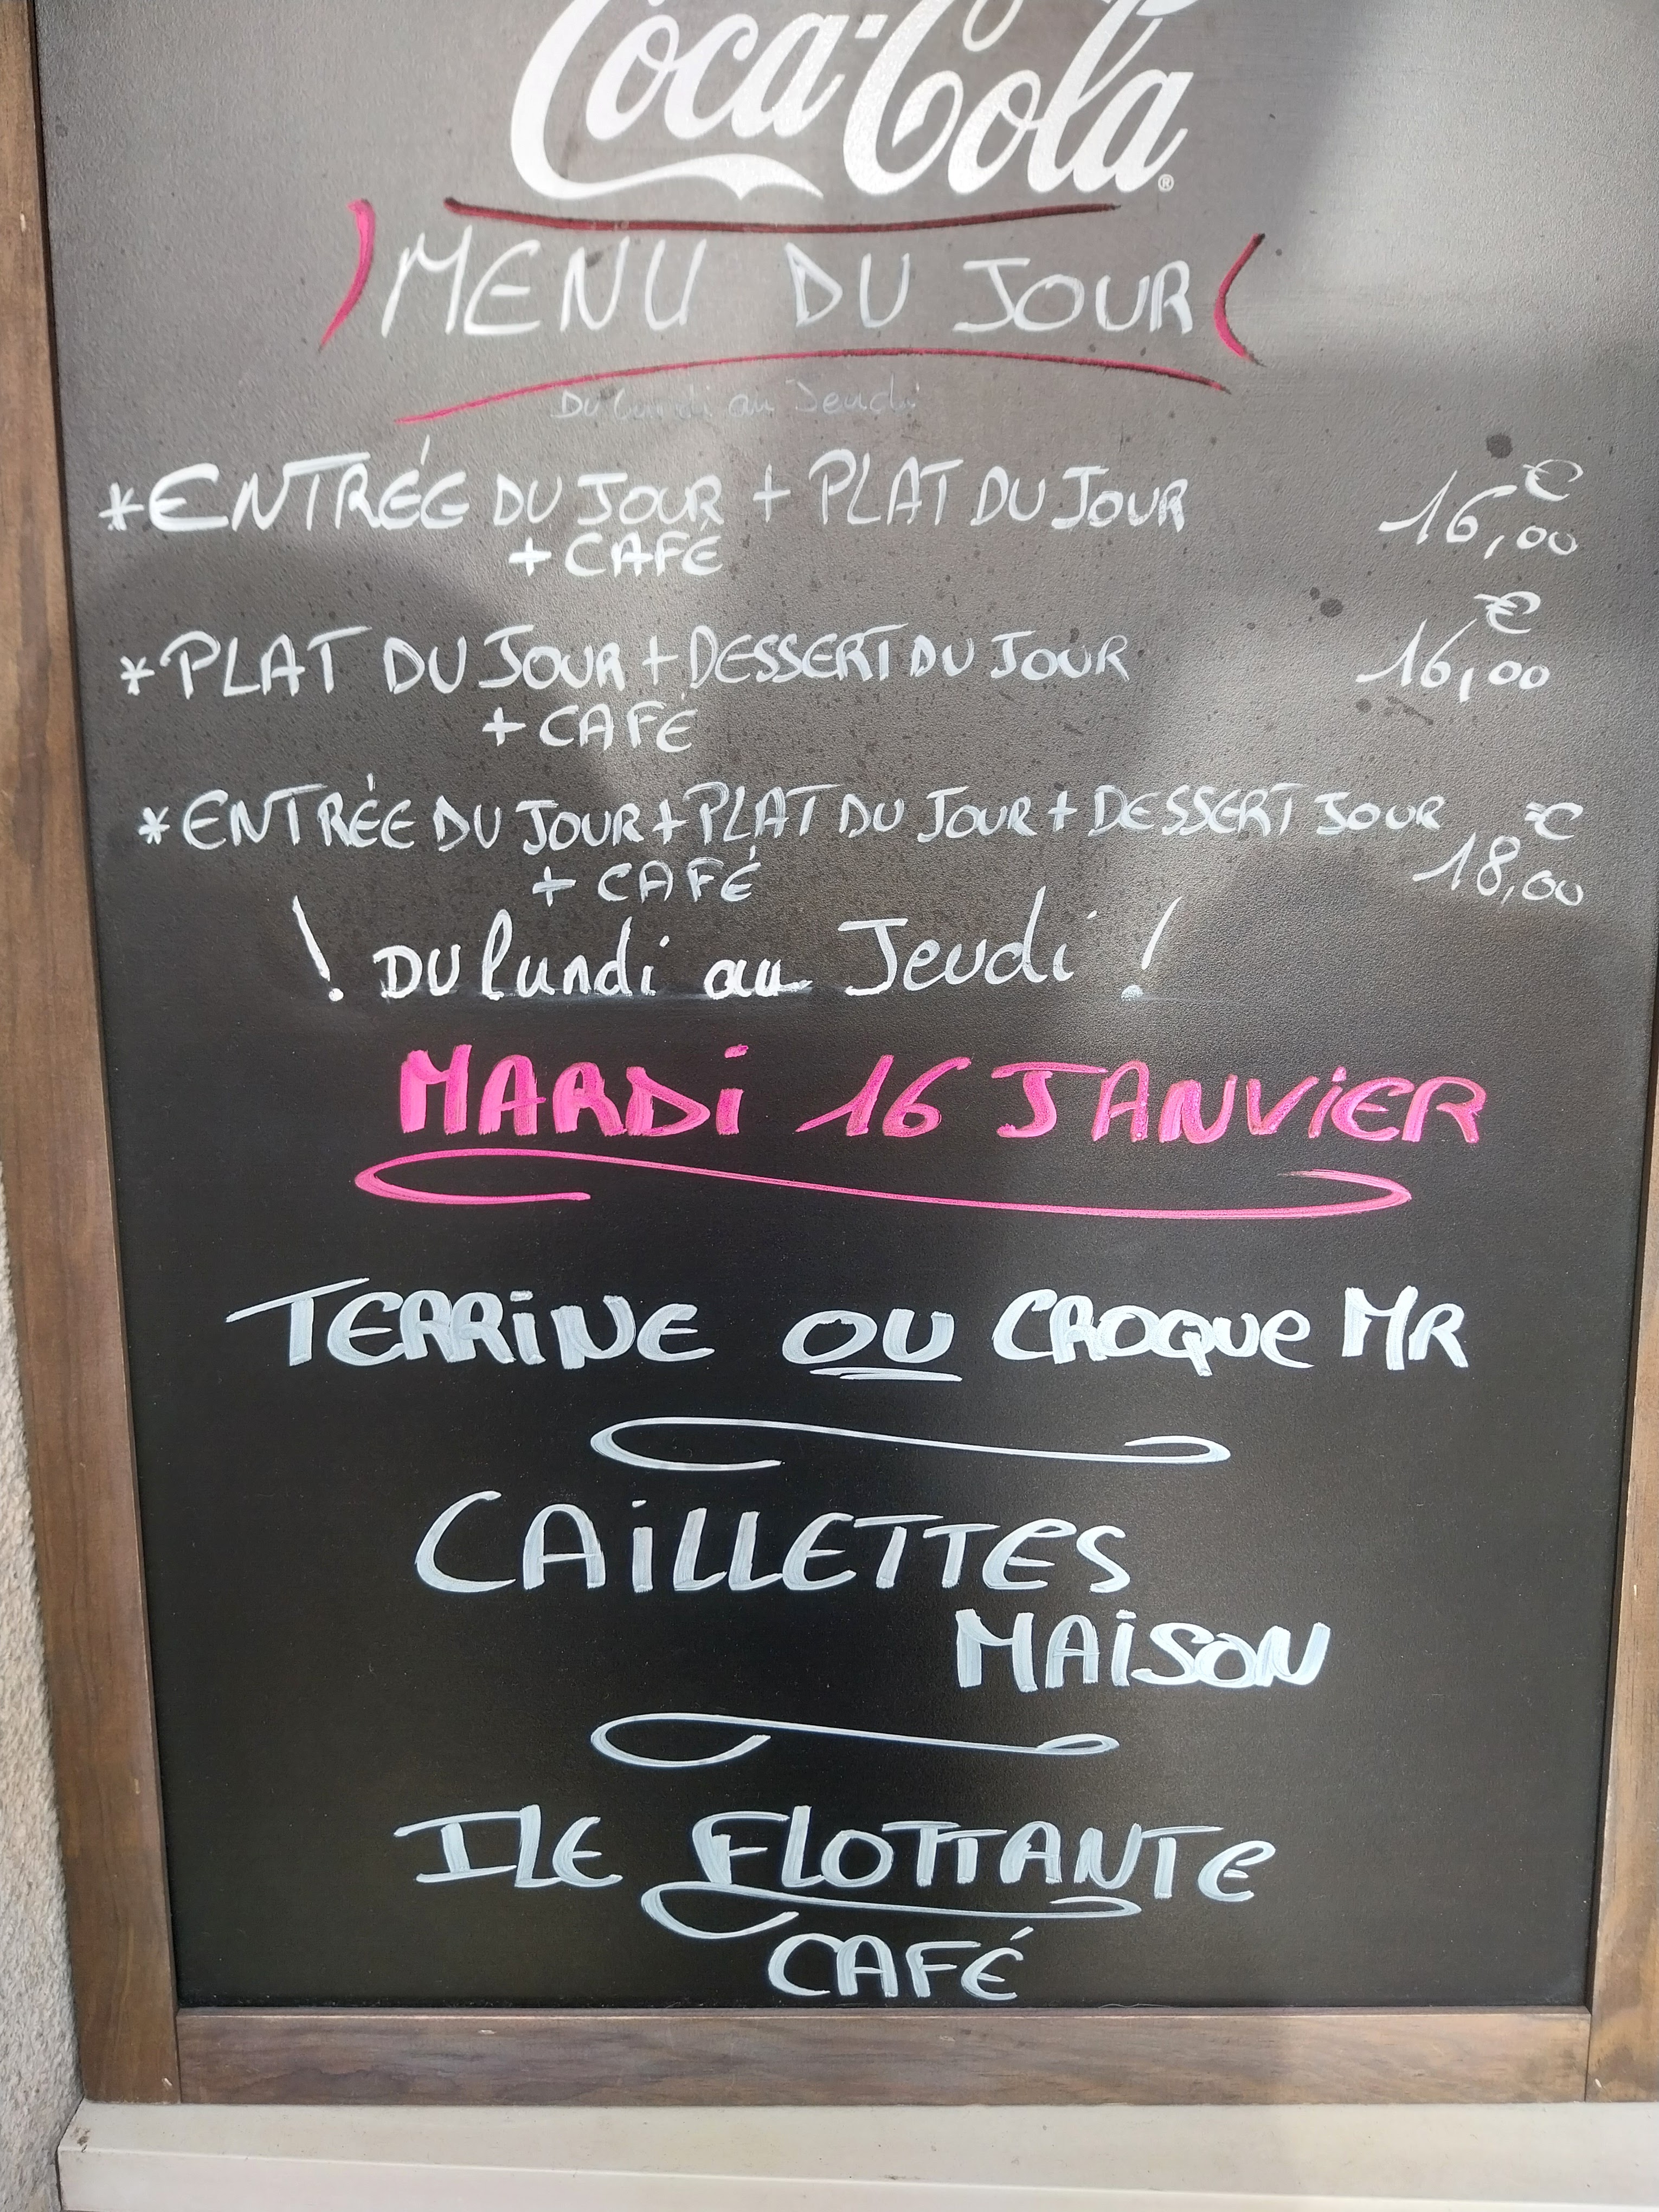 Coca-Cola®
MENU DU JOUR
Du lundi au Jeudi
*ENTRÉE DU JOUR + PLAT DU JOUR 16,00 €
+ CAFÉ
*PLAT DU JOUR + DESSERT DU JOUR 16,00 €
+ CAFÉ
*ENTRÉE DU JOUR + PLAT DU JOUR + DESSERT JOUR 18,00 €
+ CAFÉ
! DU lundi au Jeudi !
MARDi 16 JANViER
TERRiNE OU CROQUe MR
CAiLLETTeS
MAiSON
ILE FLOTTANTe
CAFÉ